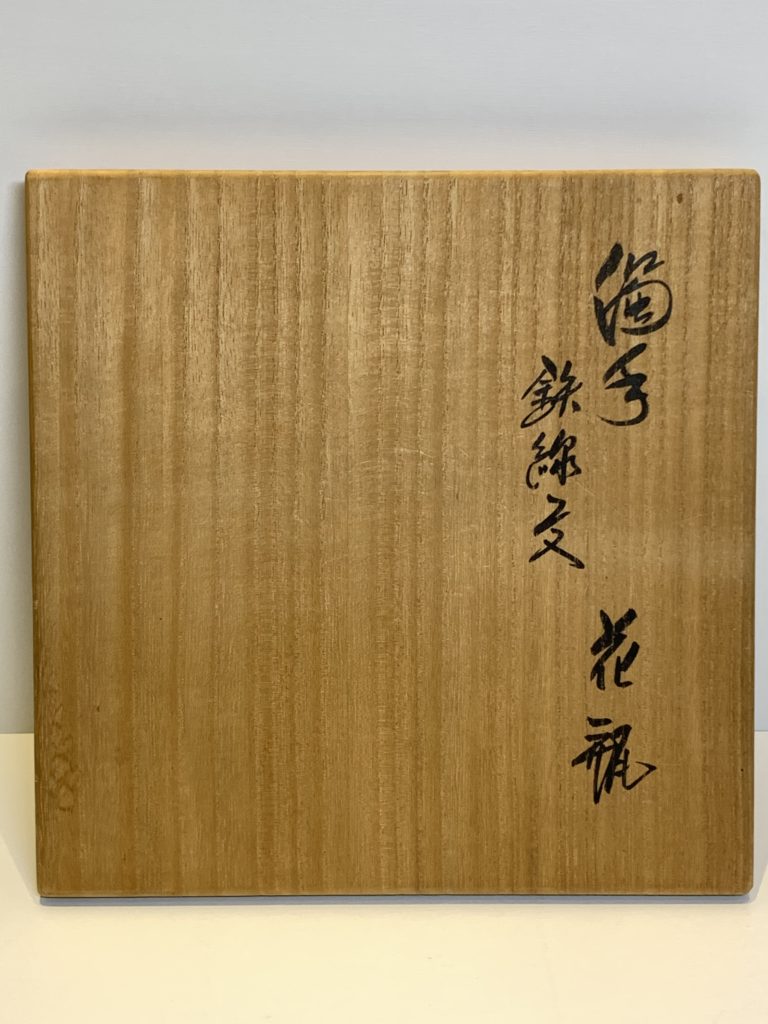 濁手
鉄線文
花瓶